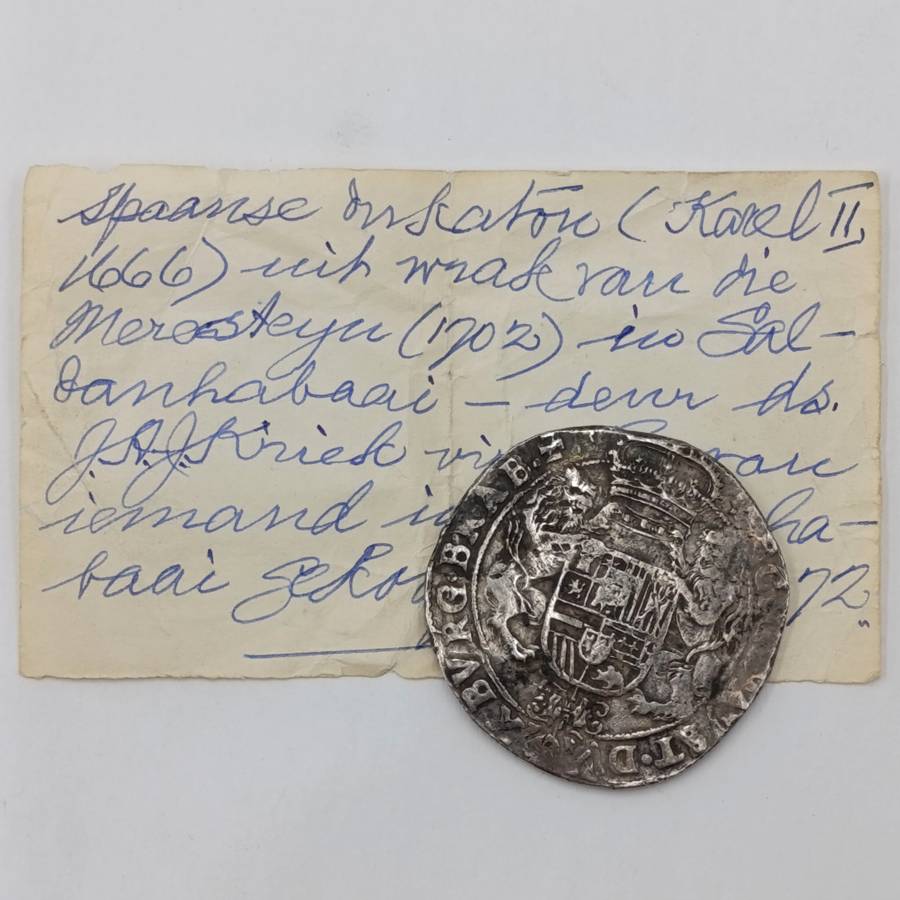 Spaanse dukaton (Karel II,
1666) uit wrak van die
Meresteyn (1702) in Sal-
danhabaai – deur ds.
J.A.J. Kriek vir van
iemand in ha-
baai geko 72
BVRG·BRAB·Z
ST·DV